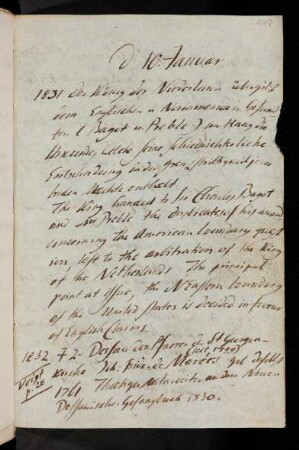 d 10. Januar
1831 Der König der Niederlande übergibt
dem Englischen u Nordamerikan Gesand
ten ( Bagot u Preble ) im Haag die
Urkunde, welche seine schiedsrichterliche
Entscheidung in der Grenzstreitigkeit
beider Mächte enthält
The King handed to Sir Charles Bagot
and Preble the duplicate of his award
concerning the American boundary quest
ion left to the arbitration of the King
of the Netherlands The principal
point at issue, the NEastern boundary
of the United States is decided in favour
of English Claims.
1832 72 Dessau der Pfarrer St Georgen
Kirche Joh. de Marées
1761
Dessauische Gesangbuch 1830.